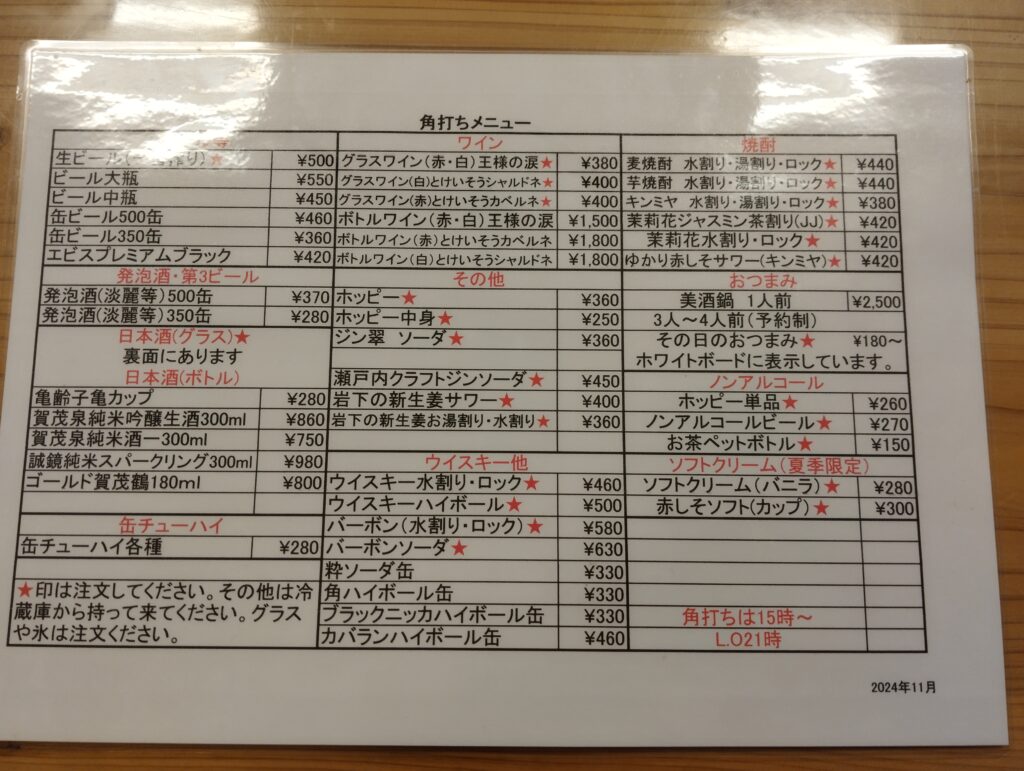 角打ちメニュー
生ビール ★ ¥500
ビール大瓶 ¥550
ビール中瓶 ¥450
缶ビール500缶 ¥460
缶ビール350缶 ¥360
エビスプレミアムブラック ¥420
発泡酒・第3ビール
発泡酒(淡麗等)500缶 ¥370
発泡酒(淡麗等)350缶 ¥280
日本酒(グラス)★
裏面にあります
日本酒(ボトル)
亀齢子亀カップ ¥280
賀茂泉純米吟醸生酒300ml ¥860
賀茂泉純米酒一300ml ¥750
誠鏡純米スパークリング300ml ¥980
ゴールド賀茂鶴180ml ¥800
缶チューハイ
缶チューハイ各種 ¥280
★印は注文してください。その他は冷
蔵庫から持って来てください。グラス
や氷は注文ください。
ワイン
グラスワイン(赤・白)王様の涙★ ¥380
グラスワイン(白)とけいそうシャルドネ★ ¥400
グラスワイン(赤)とけいそうカベルネ★ ¥400
ボトルワイン(赤・白)王様の涙 ¥1,500
ボトルワイン(赤)とけいそうカベルネ ¥1,800
ボトルワイン(白)とけいそうシャルドネ ¥1,800
その他
ホッピー★ ¥360
ホッピー中身★ ¥250
ジン翠 ソーダ★ ¥360
瀬戸内クラフトジンソーダ★ ¥450
岩下の新生姜サワー★ ¥400
岩下の新生姜お湯割り・水割り★ ¥360
ウイスキー他
ウイスキー水割り・ロック★ ¥460
ウイスキーハイボール★ ¥500
バーボン(水割り・ロック)★ ¥580
バーボンソーダ★ ¥630
粋ソーダ缶 ¥330
角ハイボール缶 ¥330
ブラックニッカハイボール缶 ¥330
カバランハイボール缶 ¥460
焼酎
麦焼酎 水割り・湯割り・ロック★ ¥440
芋焼酎 水割り・湯割り・ロック★ ¥440
キンミヤ 水割り・湯割り・ロック★ ¥380
茉莉花ジャスミン茶割り(JJ)★ ¥420
茉莉花水割り・ロック★ ¥420
ゆかり赤しそサワー(キンミヤ)★ ¥420
おつまみ
美酒鍋 1人前 ¥2,500
3人〜4人前(予約制)
その日のおつまみ★ ¥180〜
ホワイトボードに表示しています。
ノンアルコール
ホッピー単品★ ¥260
ノンアルコールビール★ ¥270
お茶ペットボトル★ ¥150
ソフトクリーム(夏季限定)
ソフトクリーム(バニラ)★ ¥280
赤しそソフト(カップ)★ ¥300
角打ちは15時〜
L.O21時
2024年11月